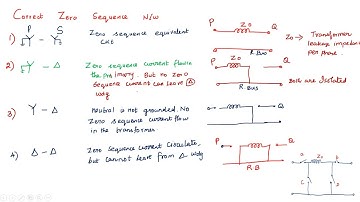 Correct Zero Sequence N/w
P S
1) Y - Y Zero sequence equivalent
ckt
P Z0 Q
R.Bus
Z0 → Transformer
leakage impedance
per phase.
2) Y - Δ Zero sequence current flow in
the primary. But no zero
sequence current can leave Δ
wdg
P Q
R.Bus
Both are Isolated
3) Y - Δ Neutral is not grounded. No
Zero sequence current flow
in the transformer.
4) Δ - Δ Zero sequence current circulate,
but cannot leave from Δ wdg
P Q
R B
Z0